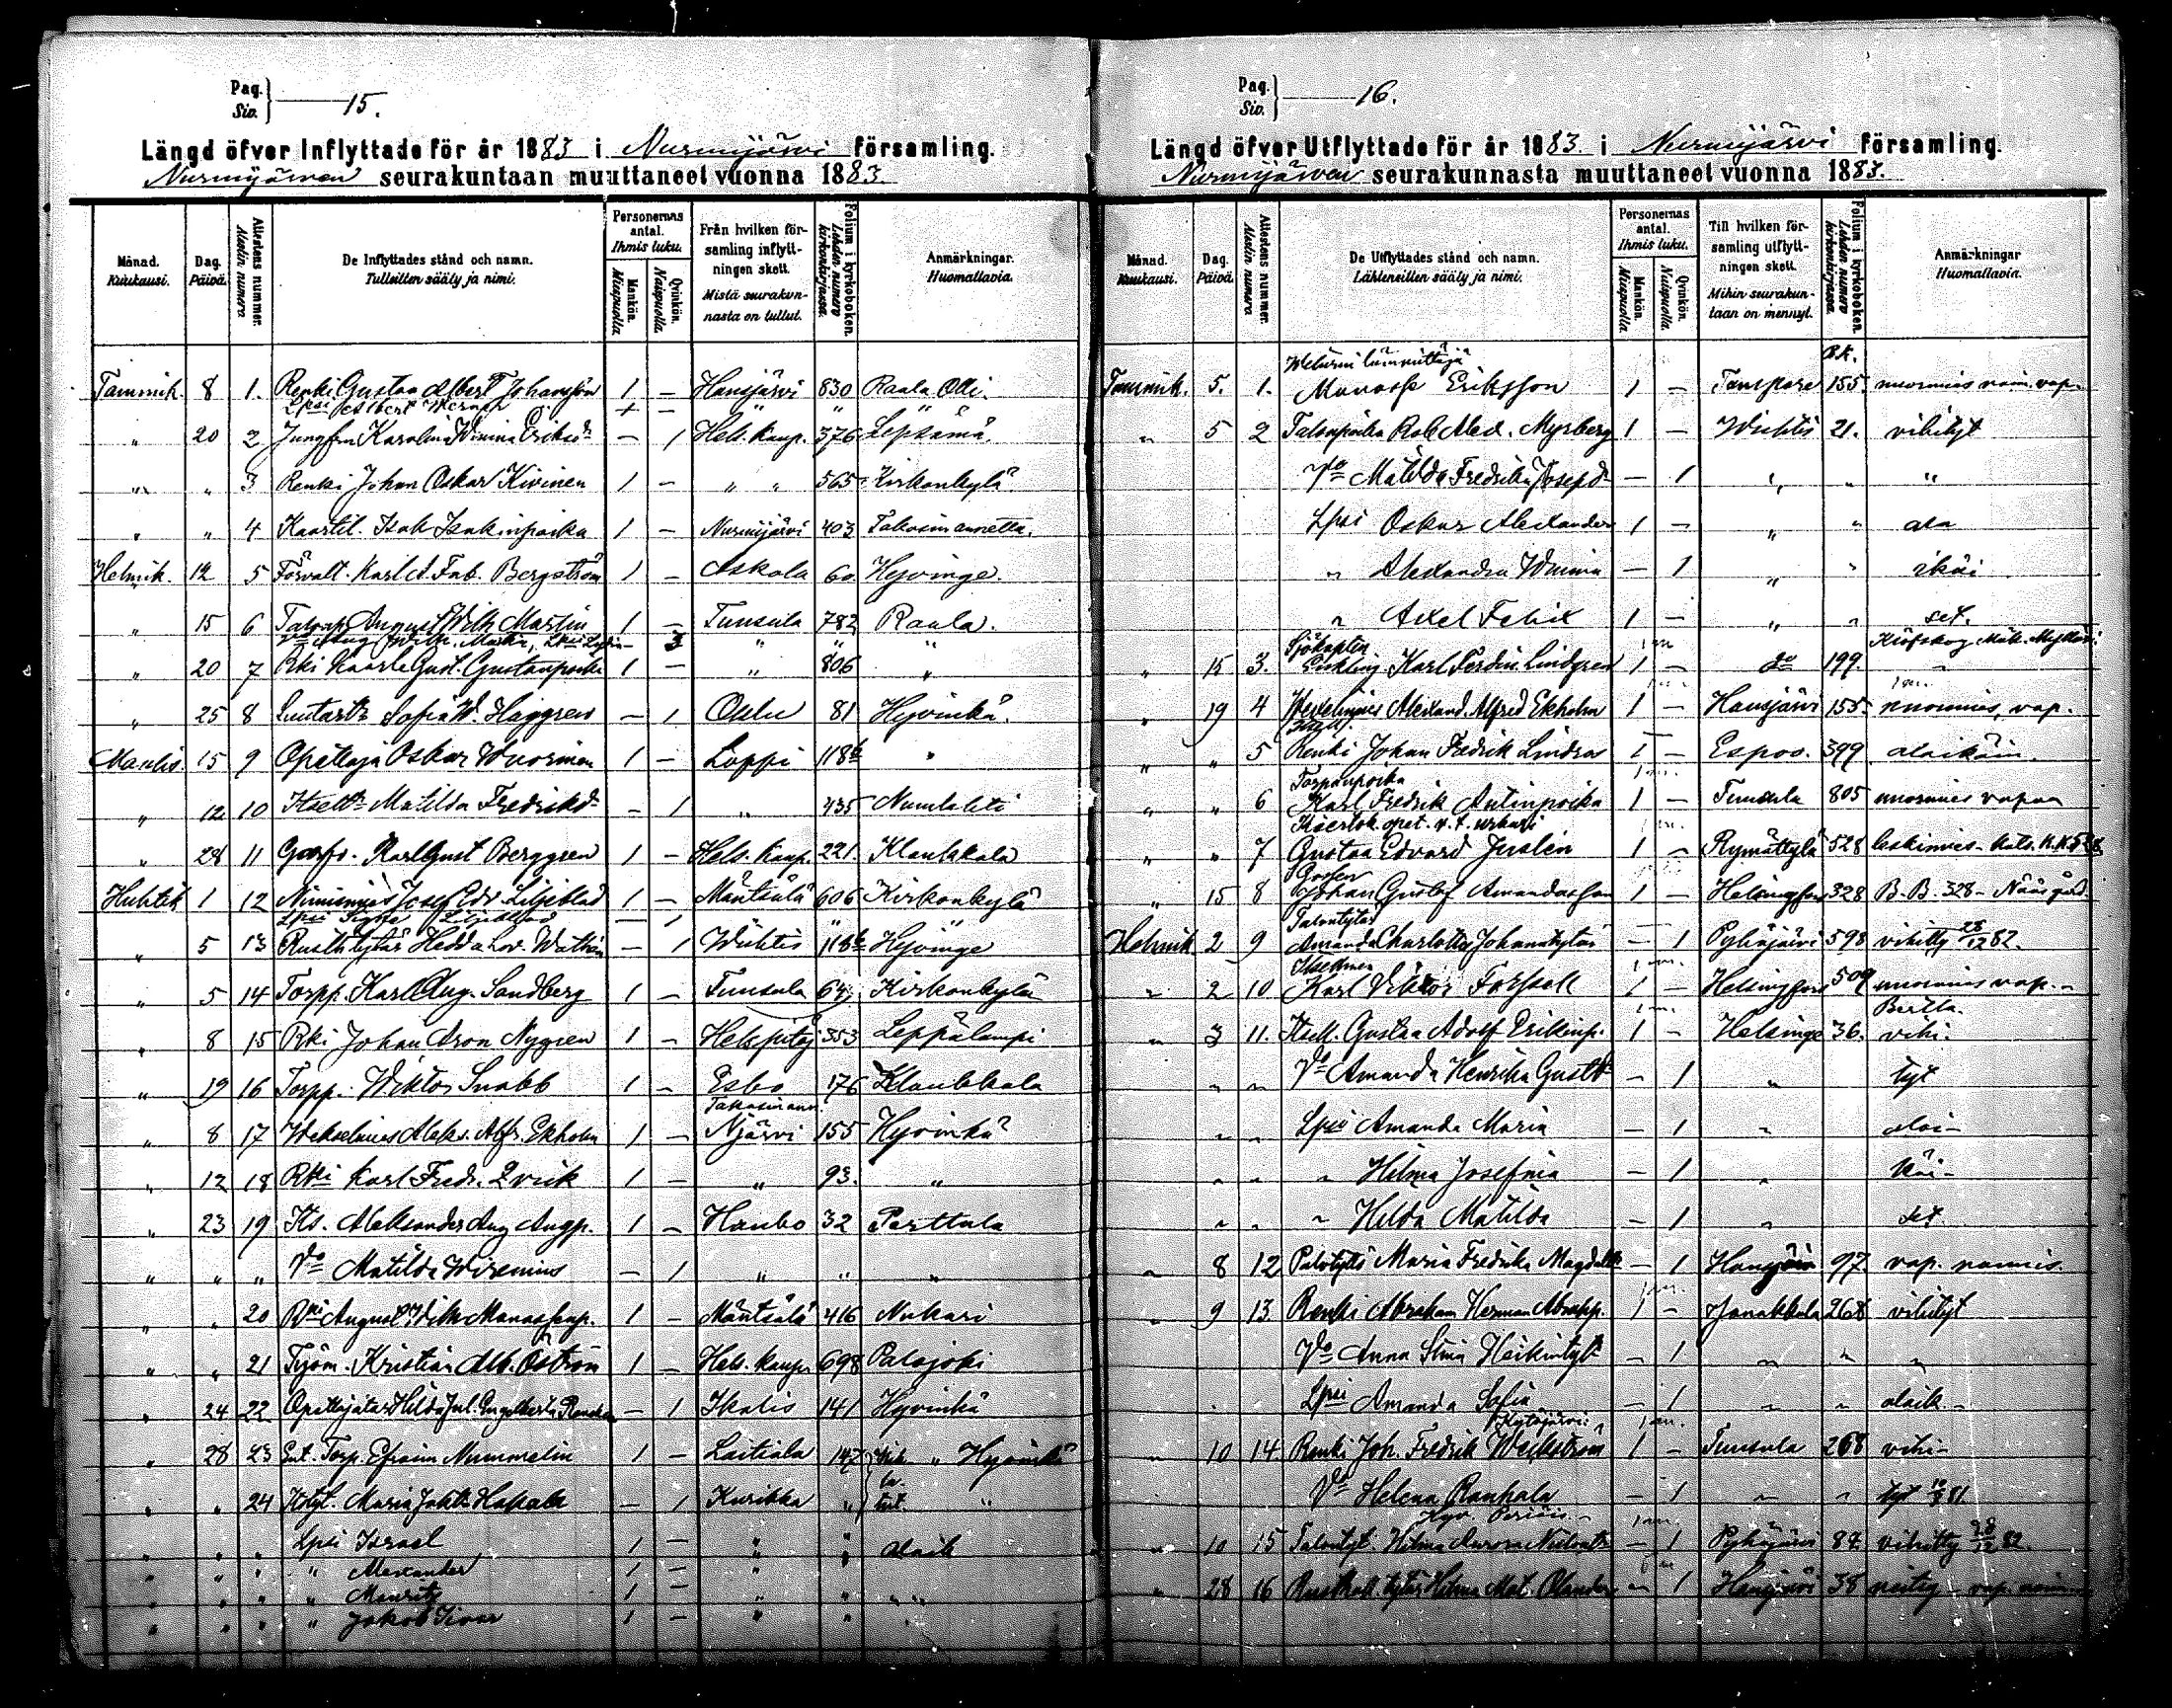 Pag. Siv. 15.
Längd öfver Inflyttade för år 1883 i Nurmijärvi församling.
Nurmijärven seurakuntaan muuttaneet vuonna 1883.
Månad. Kuukausi.
Dag. Päivä.
Attestens nummer. Alestin numero
De Inflyttades stånd och namn. Tulleitten sääty ja nimi.
Personernas antal. Ihmis luku.
Mankön. Miespuolia
Qvinkön. Naispuolia.
Från hvilken församling inflyttningen skett. Mistä seurakunnasta on tullut.
Folium i kyrkoboken. Lehden numero kirkonkirjassa.
Anmärkningar. Huomattavia.
Tammik. 8 1. Renki Gustaa Albert Johansson 1 – Hausjärvi 830 Raala Olli.
Lpsi Albert Werner + – " "
" 20 2 Jungfru Karolina Wimma Eriksdr – 1 Hels. kaup. 376 Lepsämä.
" " 3 Renki Johan Oskar Kivinen 1 – " " 565 Kirkonkylä
" " 4 Kaartil. Isak Isakinpoika 1 – Nurmijärvi 403 Takasin annettu.
Helmik. 12 5 Förvalt. Karl A. Fab. Bergström 1 – Askola 60 Hyvinge.
" 15 6 August Wilh. Martin 1 – Tuusula 782 Raala.
" 20 7 Rki Kaarle Gust. Gustanpoika 1 – " 806 "
" 25 8 Sofia W. Häggren – 1 Oulu 81 Hyvinkä.
Maalis. 15 9 Opettaja Oskar Wuorinen 1 – Loppi 118b "
" 12 10 Itsell. Matilda Fredriksdr – 1 " 435 Numlahti
" 28 11 Karl Gust Berggren 1 – Hels. kaup. 221. Klaukkala
Huhtik 1 12 Josef Edv. Liljeblad 1 – Mäntsälä 606 Kirkonkylä
Lpsi Signe Liljeblad – 1 " "
" 5 13 Rusth. tytär Hedda Lov. – 1 Wihtis 118b Hyvinge
" 5 14 Torpp. Karl Aug. Sandberg 1 – Tuusula 64 Kirkonkylä
" 8 15 Rki Johan Aron Nygren 1 – Hels. pitäj 353 Leppälampi
" 19 16 Torpp. Wiktor Snabb 1 – Esbo 176 Klaukkala
Takasin ann.
" 8 17 Wekselmies Aleks. Alfr. Ekholm 1 – Njärvi 155 Hyvinkä
" 12 18 Rki Karl Fredr. Qvick 1 – " 93. "
" 23 19 Its. Aleksander Aug. Augp. 1 – Hauho 32 Perttula
" " " Vo Matilda Wirenius – 1 " " "
" " 20 Rki August Wilh. Manassenp. 1 – Mäntsälä 416 Nukari
" " 21 Työm. Kristian Alb. Öström 1 – Hels. kaup. 698 Palojoki
" 24 22 Opettajatar Hilda Jul. Engelberta – 1 Ikalis 141 Hyvinkä
" 28 23 Ent. Torp. Efraim Nummelin 1 – Laitiala 147 " Hyvinkä
" " 24 Maria Hakala – 1 Kurikka " "
" " " Lpsi Israel 1 – " " alaik
" " " " Alexander 1 – " "
" " " " Mauritz 1 – " " "
" " " " Jakob Iivar 1 – " " "
Pag. Siv. 16.
Längd öfver Utflyttade för år 1883. i Nurmijärvi församling.
Nurmijärven seurakunnasta muuttaneet vuonna 1883.
Månad. Kuukausi.
Dag. Päivä.
Attestens nummer. Alestin numero
De Utflyttades stånd och namn. Lähteneitten sääty ja nimi.
Personernas antal. Ihmis luku.
Mankön. Miespuolia
Qvinkön. Naispuolia.
Till hvilken församling utflyttningen skett. Mihin seurakuntaan on mennyt.
Folium i kyrkoboken. Lehden numero kirkonkirjassa.
Anmärkningar Huomattavia.
Weturin lämmittäjä
Tammik. 5. 1. Manasse Eriksson 1 – Tampere 155. nuorimies naim. vap.
" 5 2 Talonpoika Rob Alex. Myrberg 1 – Wichtis 21. vihityt
Vo Matilda Fredrika Josepdr – 1 " " "
Lpsi Oskar Alexander 1 – " " ala
" Alexandra Wimma – 1 " " ikäi
" Axel Felix 1 – " " set.
Sjökapten
" 15 3. Karl Ferdin. Lindgren 1 – do 199.
" 19 4 Alexand. Alfred Ekholm 1 – Hausjärvi 155. nuorimies, vap.
" " 5 Renki Johan Fredrik Lindroos 1 – Espoo. 399 alaikäin.
Torpanpoika
" " 6 Karl Fredrik Antinpoika 1 – Tuusula 805 nuorimies vapaa
opet. v.t. urkuri
" " 7 Gustaa Edvard Juslin 1 – Rymättylä 528 leskimies
" 15 8 Johan Gustaf Amandasson 1 – Helsingfors 328 B.B. 328 – Nääs gård.
Talontytär
Helmik. 2 9 Amanda Charlotta Johanstytär – 1 Pyhäjärvi 598 vihitty 28/12 82.
" 2 10 Karl Viktor Forssell 1 – Helsingfors 509 nuorimies vap. –
" 3 11. Itsell. Gustaa Adolf Erikinp. 1 – Helsinge 36. vihi-
" " Vo Amanda Henrika Gustdr – 1 " tyt
" " Lpsi Amanda Maria – 1 " alai-
" " " Hilma Josefina – 1 " käi-
" " " Hilda Matilda – 1 " set
" 8 12 Maria Fredrika – 1 Hausjärvi 97. vap. naimis.
" 9 13. Renki Abraham Herman Abrahp. 1 – Janakkala 268 vihityt
Vo Anna Stina Heikintyt – 1 " " "
Lpsi Amanda Sofia – 1 " " alaik –
Kytäjärvi
" 10 14. Renki Joh. Fredrik Weckström 1 – Tuusula 268 vihi-
Vo Helena Rauhala – 1 " " tyt 81.
" 10 15 Talontyt. Hilma Aurora – 1 Pyhäjärvi 87. vihitty 28/12 82.
" 28 16 Rusth. tytär Hilma Mat. Olander – 1 Hausjärvi 38